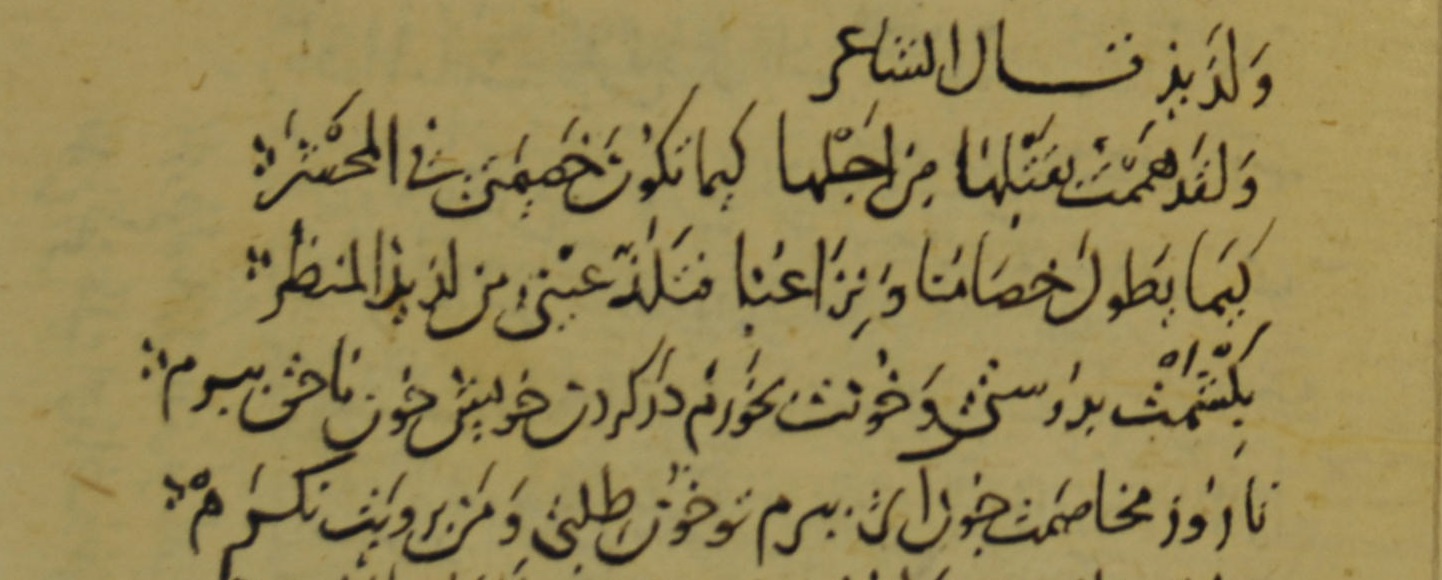 وَلذَيذِ قال الشاعر
وَلقَد هَممَّتُ بقَتْلِهَا مِن اجَلْها كَيما تكوُن خَصيمَتي في المحْشَرِ
كَيمَا يَطولَ خصَامُنا وَنِزَاعُنا فتَلَذّ عيْني من لذيذ المنظَرِ
بكُشَمْت بدو ستى وَخُونت بخورم در كردن خويش خون ناحق ببرم
تا روز مخاصمت جون آئى ببرم تو خون طلبى وَمَن برويت نكرم